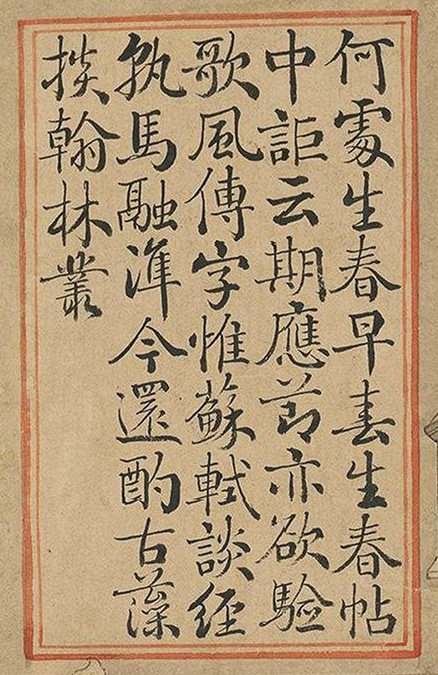 何處生春早春生春帖
中詎云期應節亦欲驗
歌風傳字惟蘇軾談經
孰馬融準今還酌古藻
掞翰林叢